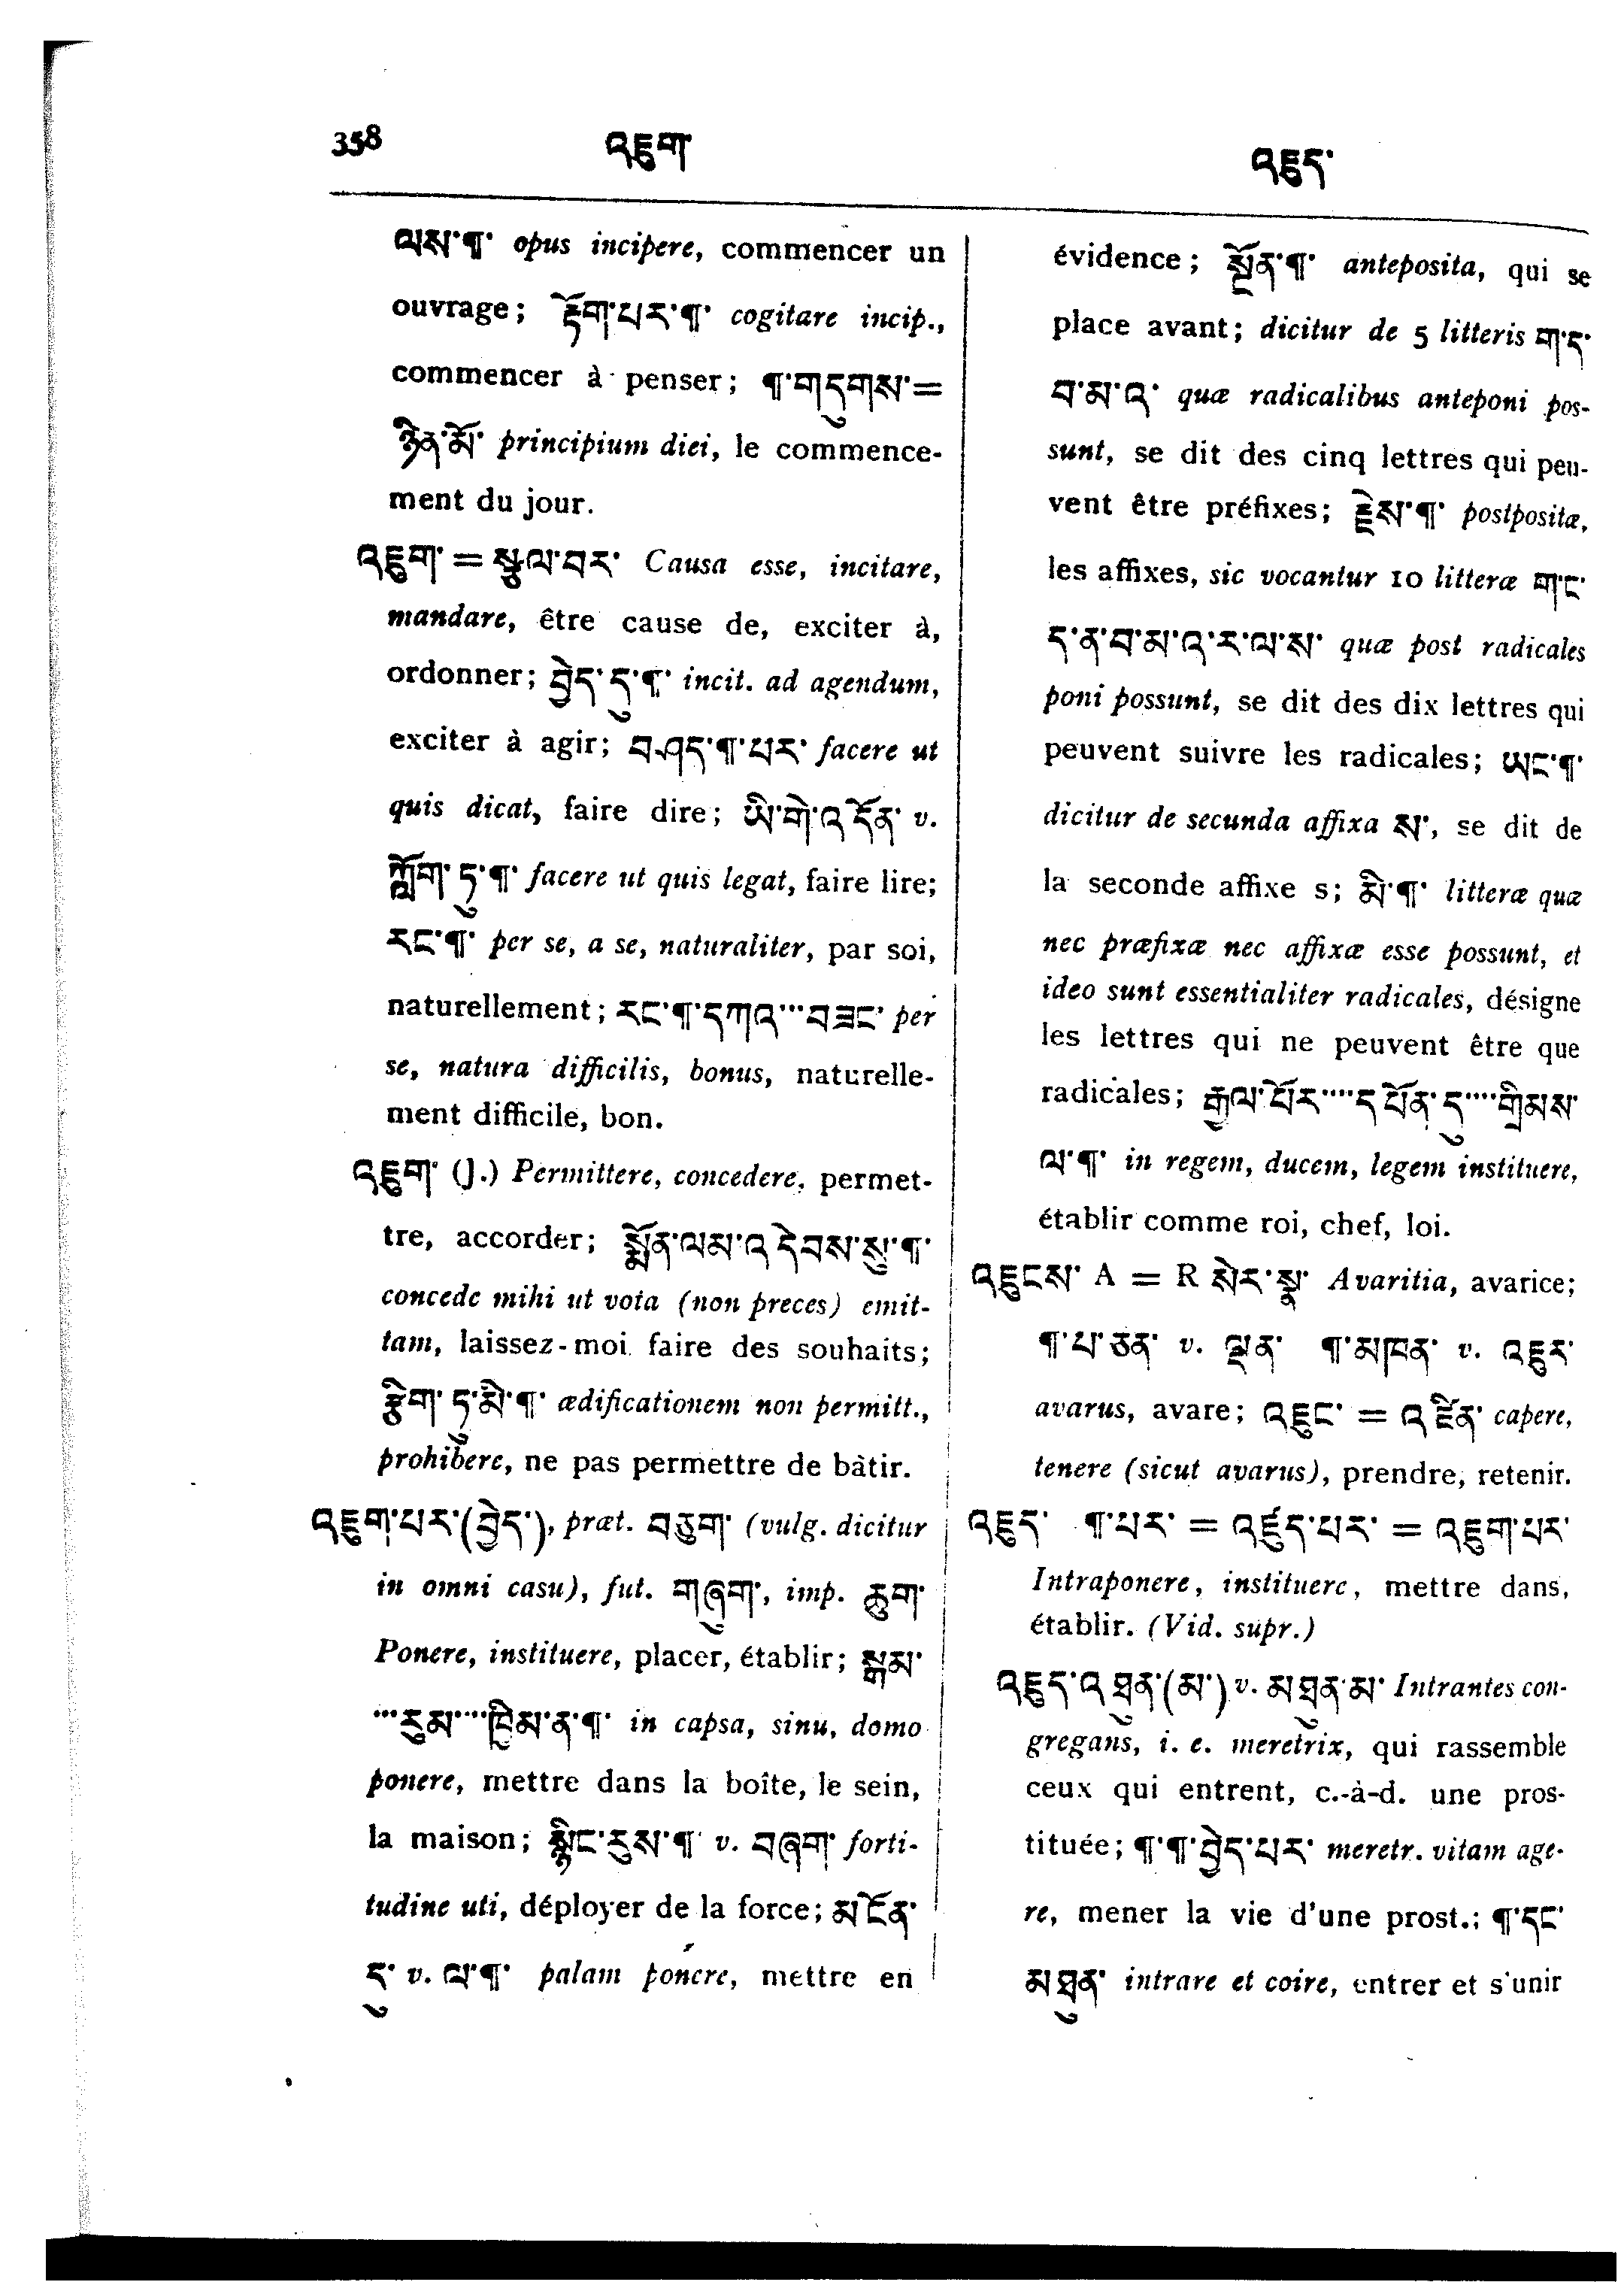 358 འཇུག་ འཇུད་
ལས་¶་ opus incipere, commencer un
ouvrage; རྟོག་པར་¶་ cogitare incip.,
commencer à penser; ¶་གདུགས་=
ཉིན་མོ་ principium diei, le commence-
ment du jour.
འཇུག་ = སྐུལ་བར་ Causa esse, incitare,
mandare, être cause de, exciter à,
ordonner; བྱེད་དུ་¶་ incit. ad agendum,
exciter à agir; བཤད་¶་པར་ facere ut
quis dicat, faire dire; ཡི་གེ་འདོན་ v.
ཀློག་ཏུ་¶་ facere ut quis legat, faire lire;
རང་¶་ per se, a se, naturaliter, par soi,
naturellement; རང་¶་དཀའ་··བཟང་ per
se, natura difficilis, bonus, naturelle-
ment difficile, bon.
འཇུག་ (J.) Permittere, concedere, permet-
tre, accorder; སྨོན་ལམ་འདེབས་སུ་¶་
concede mihi ut vota (non preces) emit-
tam, laissez-moi faire des souhaits;
རྩིག་ཏུ་མི་¶་ ædificationem non permitt.,
prohibere, ne pas permettre de bâtir.
འཇུག་པར་(བྱེད་), præt. བཅུག་ (vulg. dicitur
in omni casu), fut. གཞུག་, imp. ཆུག་
Ponere, instituere, placer, établir; སྒམ་
···རུམ་···ཁྱིམ་ན་¶་ in capsa, sinu, domo
ponere, mettre dans la boîte, le sein,
la maison; སྙིང་རུས་¶་ v. བཞག་ forti-
tudine uti, déployer de la force; མངོན་
དུ་ v. ལ་¶་ palam ponere, mettre en
évidence; སྔོན་¶་ anteposita, qui se
place avant; dicitur de 5 litteris ག་ད་
བ་མ་འ་ quæ radicalibus anteponi pos-
sunt, se dit des cinq lettres qui peu-
vent être préfixes; རྗེས་¶་ postpositæ,
les affixes, sic vocantur 10 litteræ ག་ང་
ད་ན་བ་མ་འ་ར་ལ་ས་ quæ post radicales
poni possunt, se dit des dix lettres qui
peuvent suivre les radicales; ཡང་¶་
dicitur de secunda affixa ས་, se dit de
la seconde affixe s; མི་¶་ litteræ quæ
nec præfixæ nec affixæ esse possunt, et
ideo sunt essentialiter radicales, désigne
les lettres qui ne peuvent être que
radicales; རྒྱལ་པོར་···དཔོན་དུ་···ཁྲིམས་
ལ་¶་ in regem, ducem, legem instituere,
établir comme roi, chef, loi.
འཇུངས་ A = R སེར་སྣ་ Avaritia, avarice;
¶་པ་ཅན་ v. ལྡན་ ¶་མཁན་ v. འཇུར་
avarus, avare; འཇུང་ = འཛིན་ capere,
tenere (sicut avarus), prendre, retenir.
འཇུད་ ¶་པར་ = འཛུད་པར་ = འཇུག་པར་
Intraponere, instituere, mettre dans,
établir. (Vid. supr.)
འཇུད་འཐུན་(མ་) v. མཐུན་མ་ Intrantes con-
gregans, i. e. meretrix, qui rassemble
ceux qui entrent, c.-à-d. une pros-
tituée; ¶་¶་བྱེད་པར་ meretr. vitam age-
re, mener la vie d'une prost.; ¶་དང་
མཐུན་ intrare et coire, entrer et s'unir